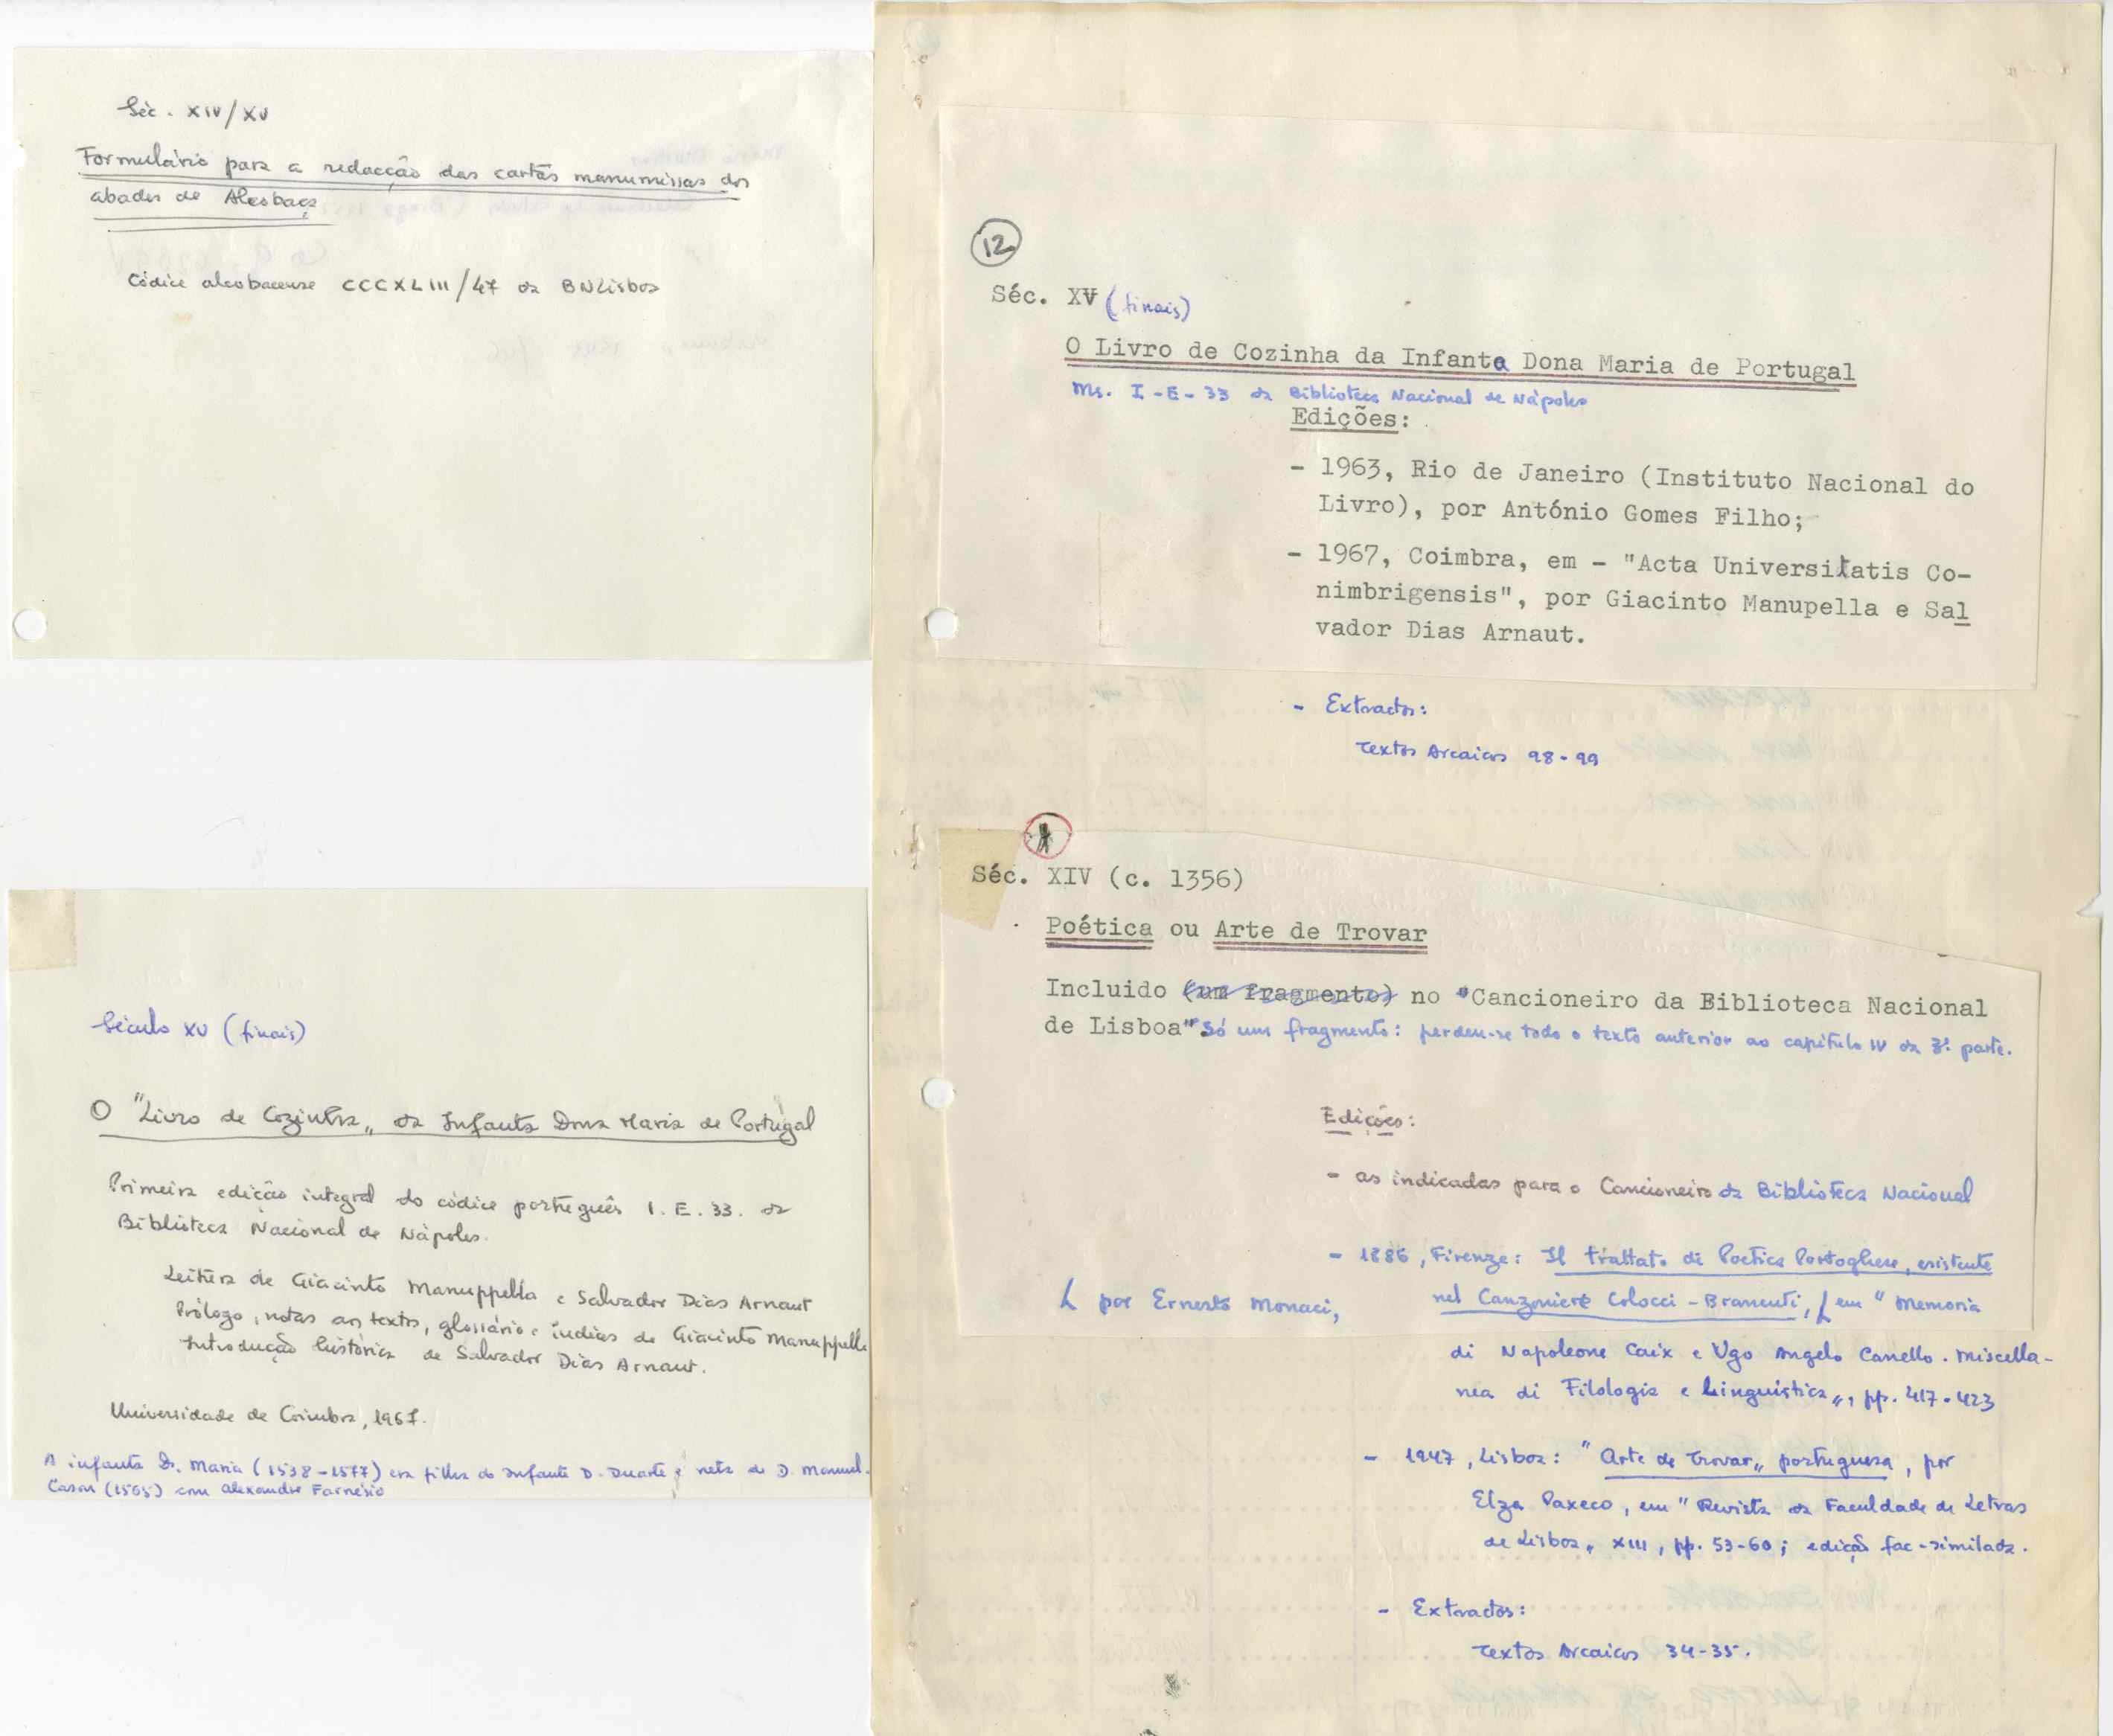 Séc. XIV/XV
Formulário para a redacção das cartas manumissas dos
abades de Alcobaça
Códice alcobacense CCCXLIII/47 da BNLisboa
Século XV (finais)
O "Livro de Cozinha„ da Infanta Dona Maria de Portugal
Primeira edição integral do códice português I. E. 33. da
Biblioteca Nacional de Nápoles.
Leitura de Giacinto Manuppella e Salvador Dias Arnaut
Prólogo, notas aos textos, glossário e índices de Giacinto Manuppella
Introdução histórica de Salvador Dias Arnaut.
Universidade de Coimbra, 1967.
A infanta D. Maria (1538-1577) era filha do Infante D. Duarte e neta de D. Manuel.
Casou (1565) com Alexandre Farnésio
12
Séc. XV (finais)
O Livro de Cozinha da Infanta Dona Maria de Portugal
Ms. I-E-33 da Biblioteca Nacional de Nápoles
Edições:
- 1963, Rio de Janeiro (Instituto Nacional do
Livro), por António Gomes Filho;
- 1967, Coimbra, em - "Acta Universitatis Co-
nimbrigensis", por Giacinto Manupella e Sal
vador Dias Arnaut.
- Extractos:
Textos Arcaicos 98-99
Séc. XIV (c. 1356)
Poética ou Arte de Trovar
Incluido (um fragmento) no "Cancioneiro da Biblioteca Nacional
de Lisboa" Só um fragmento: perdeu-se todo o texto anterior ao capítulo IV da 3ª. parte.
Edições:
- as indicadas para o Cancioneiro da Biblioteca Nacional
- 1886, Firenze: Il trattato di Poetica Portoghese, esistente
nel Canzoniere Colocci-Brancuti, em "Memoria
por Ernesto Monaci,
di Napoleone Caix e Ugo Angelo Canello. Miscella-
nea di Filologia e Linguistica„, pp. 417-423
- 1947, Lisboa: "Arte de Trovar„ portuguesa, por
Elza Paxeco, em "Revista da Faculdade de Letras
de Lisboa„ XIII, pp. 53-60; edição fac-similada.
- Extractos:
Textos Arcaicos 34-35.